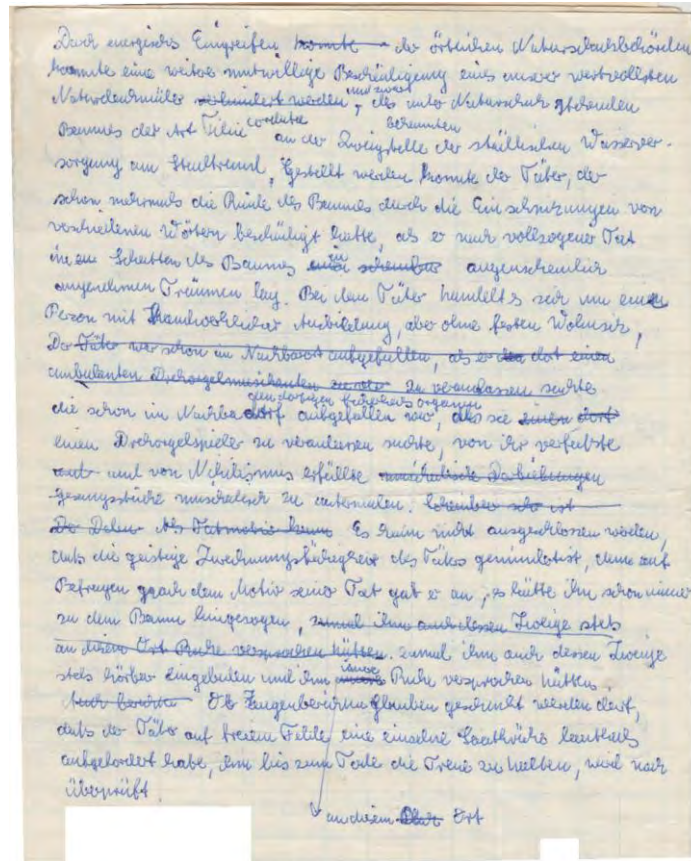 Durch energisches Eingreifen ~~konnte~~ der örtlichen Naturschutzbehörden
konnte eine weitere mutwillige Beschädigung eines unserer wertvollsten
Naturdenkmäler ~~verhindert werden~~, und zwar des unter Naturschutz stehenden
Baumes der Art Tilia cordata an der bekannten Zweigstelle der städtischen Wasserver-
sorgung am Stadtrand. Gestellt werden konnte der Täter, der
schon mehrmals die Rinde des Baumes durch die Einschnitzungen von
verschiedenen Wörtern beschädigt hatte, als er nach vollzogener Tat
im Schatten des Baumes in ~~scheinbar~~ augenscheinlich
angenehmen Träumen lag. Bei dem Täter handelt es sich um eine
Person mit Handwerklicher Ausbildung, aber ohne festen Wohnsitz,
~~Der Täter war schon im Nachbarort aufgefallen, als er dort einen~~
~~ambulanten Drehorgelmusikanten zu veranlassen suchte~~
die schon im Nachbardorf den dortigen aufgefallen war, als sie ~~einen dort~~
einen Drehorgelspieler zu veranlassen suchte, von ihr verfaßte
und von Nihilismus erfüllte ~~musikalische Darbietungen~~
Gesangsstücke musikalisch zu untermalen.
Es kann nicht ausgeschlossen werden,
daß die geistige Zurechnungsfähigkeit des Täters gemindert ist, denn auf
Befragen nach dem Motiv seiner Tat gab er an, es hätte ihn schon immer
zu dem Baum hingezogen, ~~zumal ihm auch dessen Zweige stets~~
~~an diesem Ort Ruhe versprochen hätten.~~ zumal ihm auch dessen Zweige
stets hörbar eingeladen und ihm Ruhe versprochen hätten.
Ob Zeugenberichten Glauben geschenkt werden darf,
daß der Täter auf freiem Felde eine einzelne Saatkrähe lauthals
aufgefordert habe, ihm bis zum Tode die Treue zu halten, wird noch
überprüft.
an diesem Ort